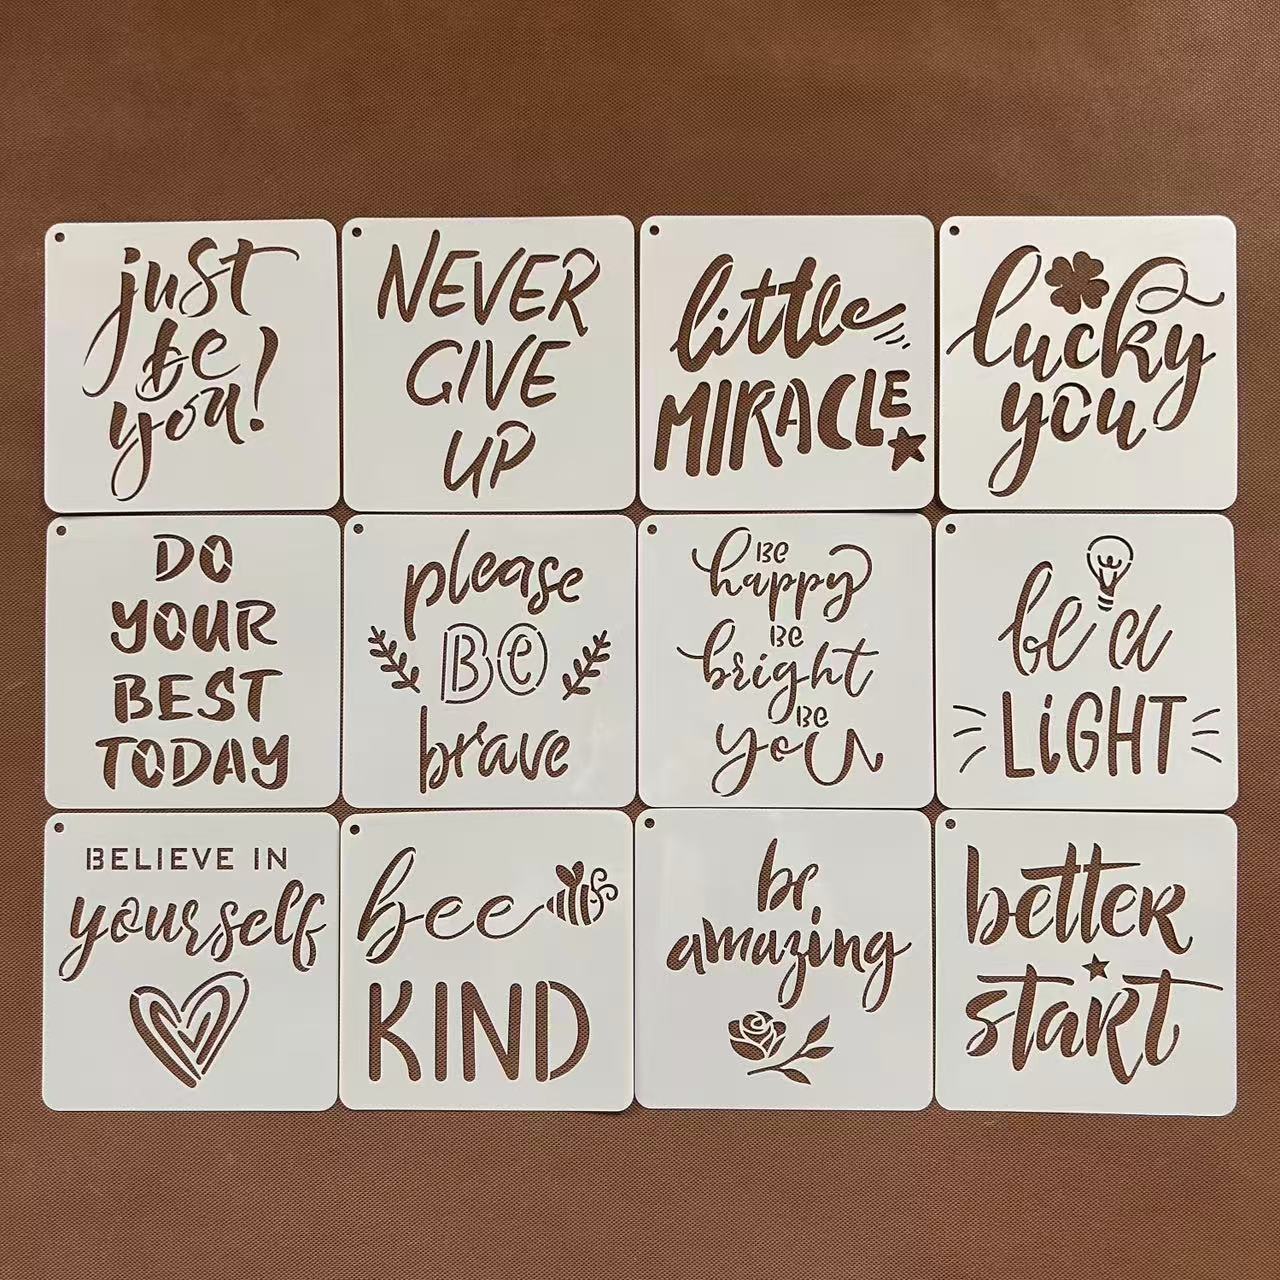 just
be
you!
NEVER
GIVE
UP
little
MIRACLE
lucky
you
DO
YOUR
BEST
TODAY
please
BE
brave
BE
happy
BE
bright
BE
you
be a
LiGHT
BELIEVE IN
yourself
bee
KIND
be
amazing
better
start